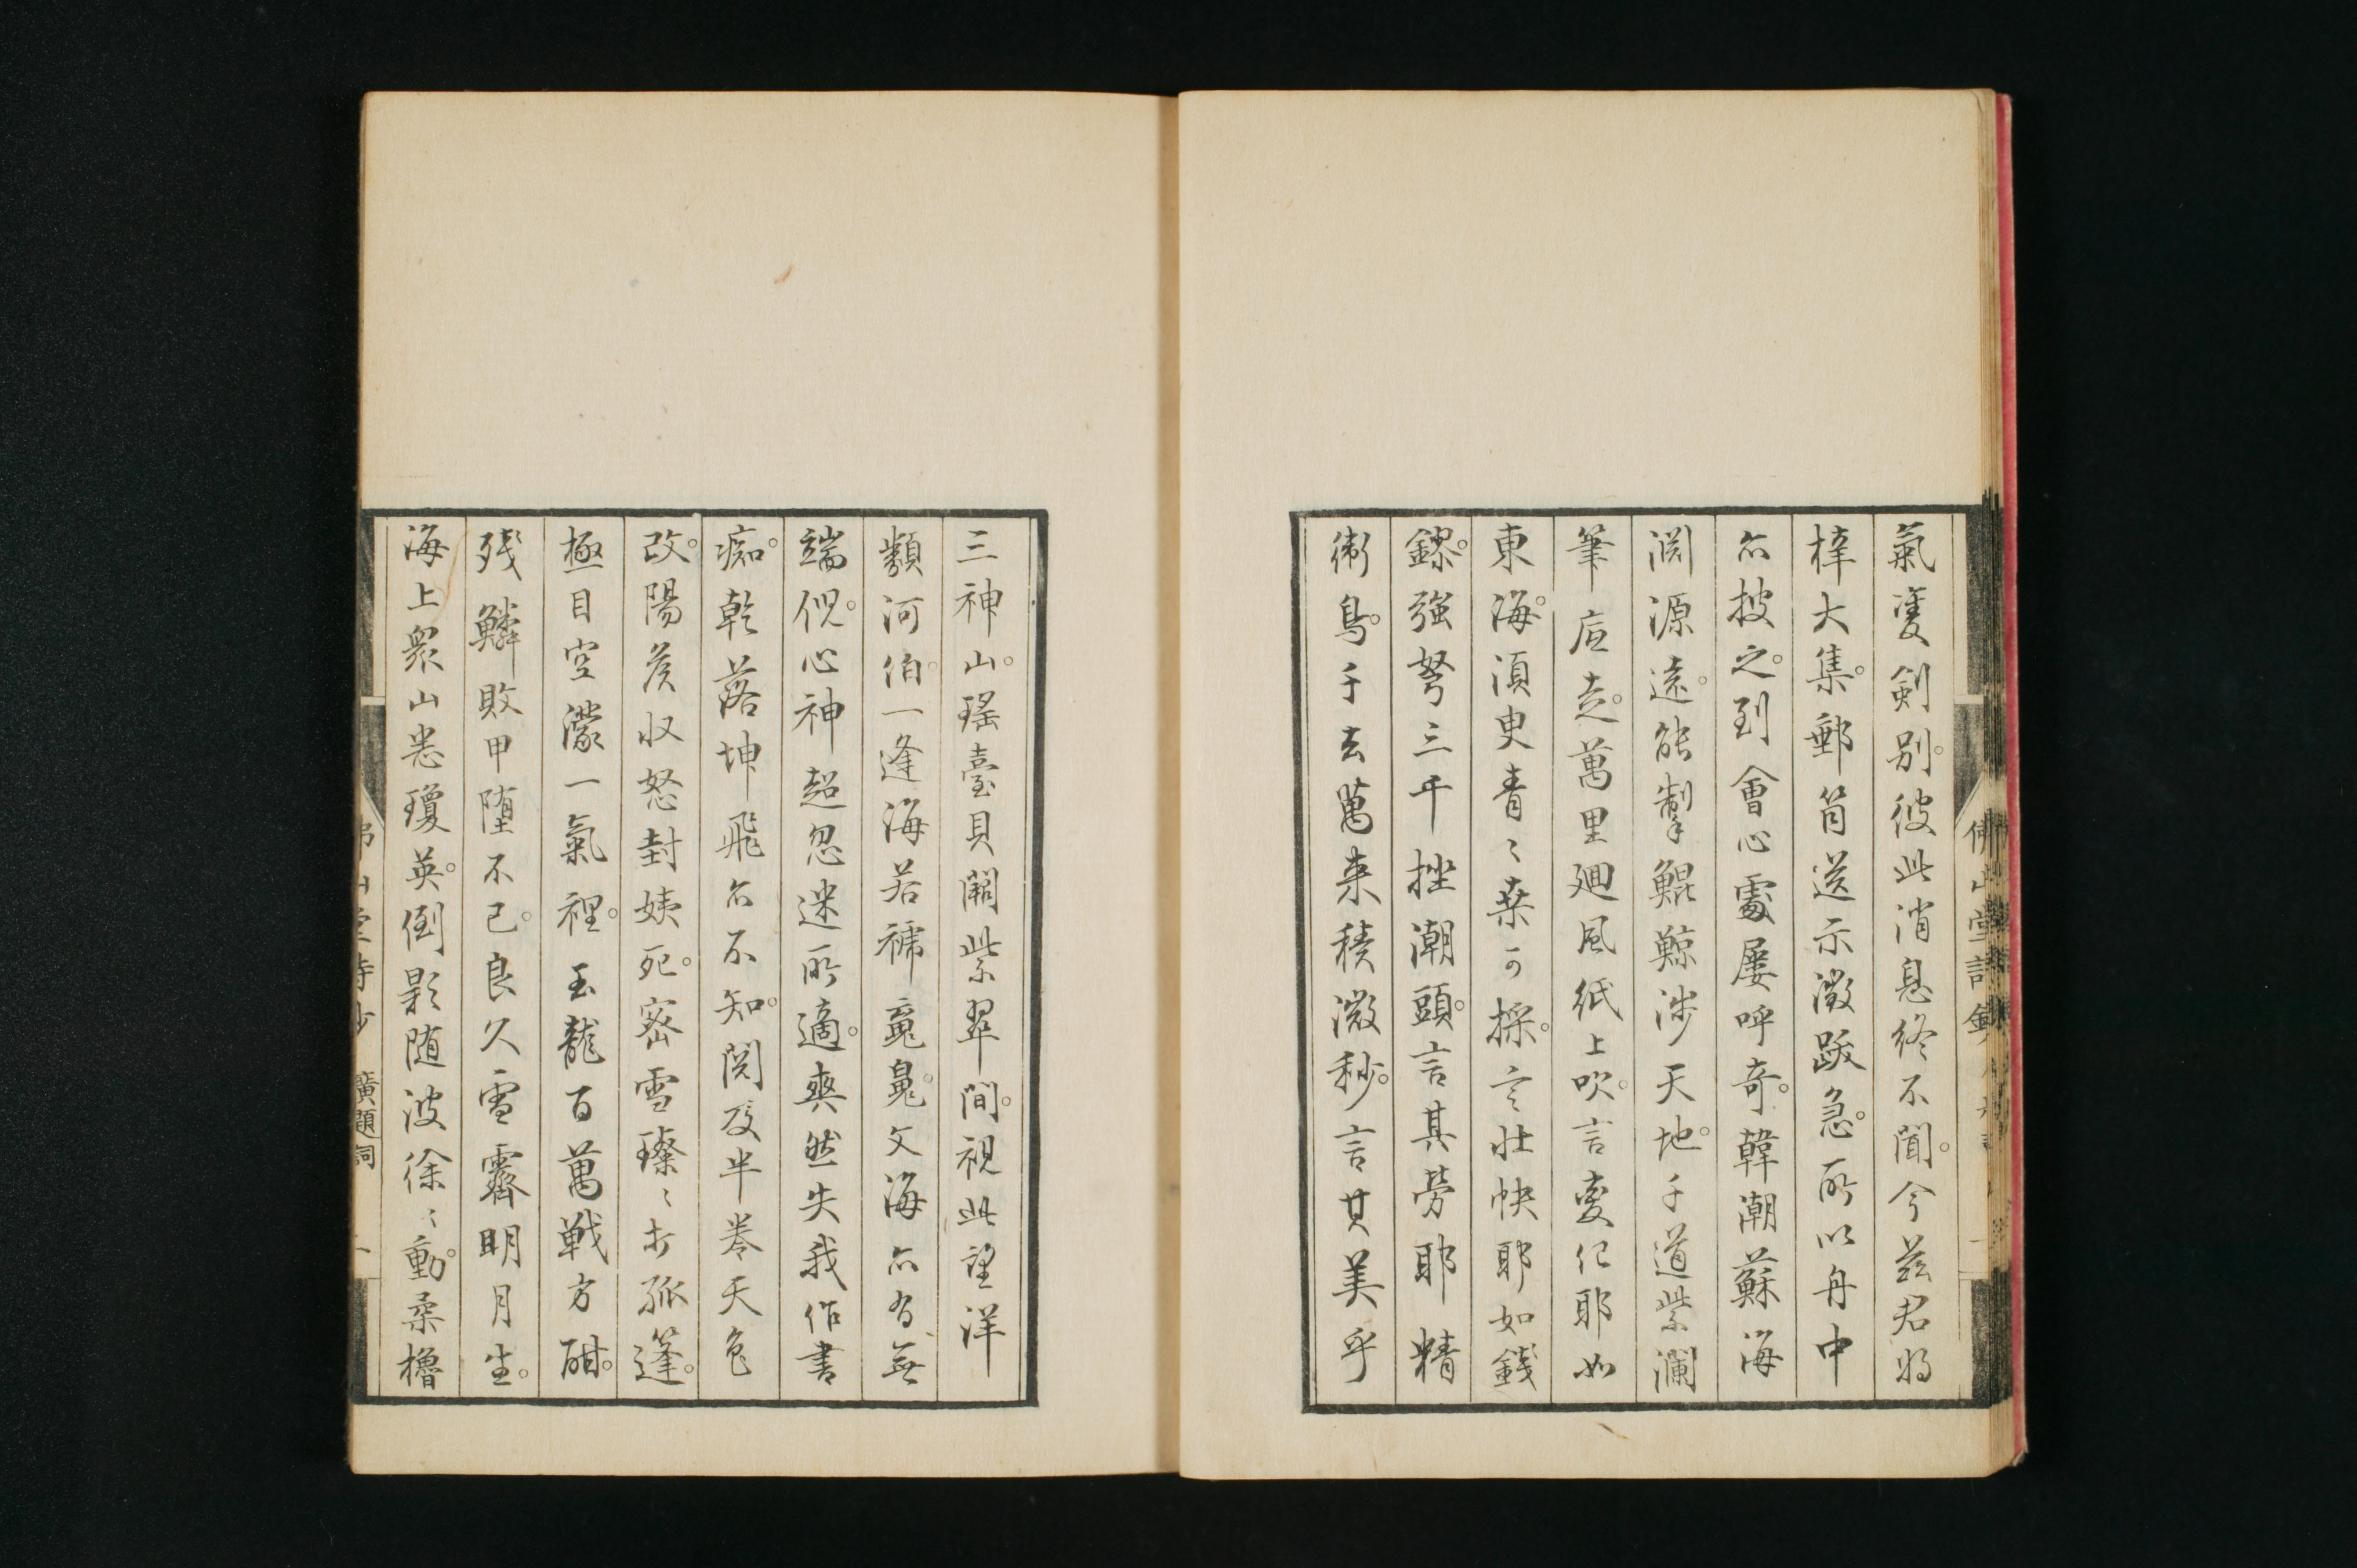 氣隻剣別。彼此消息終不聞。今茲君将
梓大集。郵筒送示激跋急。所以舟中
亦披之。到會心處屡呼奇。韓潮蘇海
渕源遠。能掣鯤鯨渉天地。千道紫瀾
筆底走。萬里廻風紙上吹。言変化耶如
東海。須臾青〻桒可採。言壮快耶如錢
鏐。強弩三千挫潮頭。言其勞耶精
衛鳥。千去萬来積激秒。言其美乎
三神山。瑤臺貝闕紫翠間。視此望洋
類河伯。一逢海若褫竜鼂。文海亦有無
端倪。心神超忽迷所適。爽然失我作書
痴。乾落坤飛亦不知。閲及半巻天色
改。陽矦収怒封姨死。密雪璨〻打孤篷。
極目空濛一氣裡。玉龍百萬戦方酣。
残鱗敗甲堕不已。良久雪霽明月生。
海上衆山悉瓊英。倒影随波徐〻動。柔櫓
廣題詞